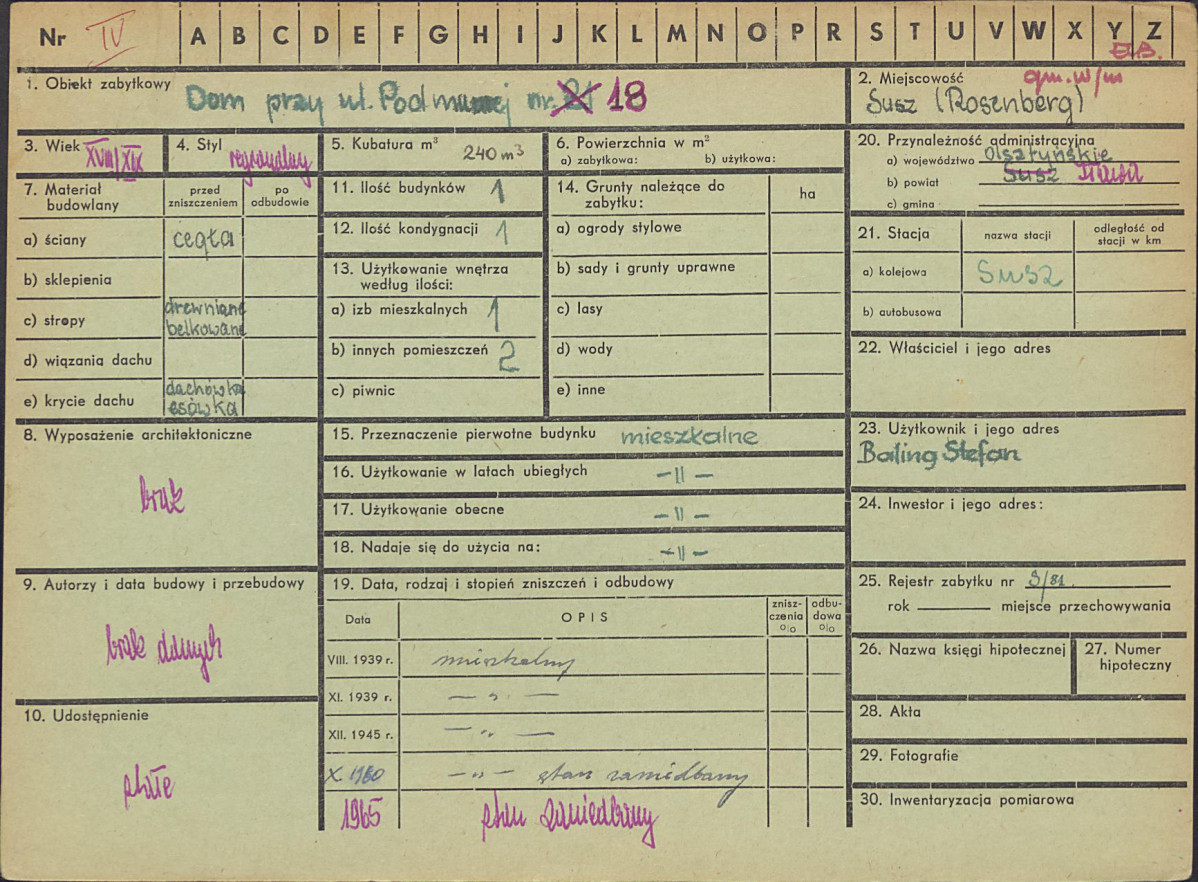 Nr IV A B C D E F G H I J K L M N O P R S T U V W X Y Z
E.B.
1. Obiekt zabytkowy
Dom przy ul. Podmurnej nr. 21 18
2. Miejscowość gm. w/m
Susz (Rosenberg)
3. Wiek XVIII/XIX
4. Styl regionalny
5. Kubatura m³ 240 m³
6. Powierzchnia w m²
a) zabytkowa: b) użytkowa:
7. Materiał budowlany
przed zniszczeniem
po odbudowie
a) ściany cegła
b) sklepienia
c) stropy drewniane
belkowane
d) wiązania dachu
e) krycie dachu dachówka
esówka
8. Wyposażenie architektoniczne
brak
9. Autorzy i data budowy i przebudowy
brak danych
10. Udostępnienie
stałe
11. Ilość budynków 1
12. Ilość kondygnacji 1
13. Użytkowanie wnętrza
według ilości:
a) izb mieszkalnych 1
b) innych pomieszczeń 2
c) piwnic
14. Grunty należące do
zabytku:
ha
a) ogrody stylowe
b) sady i grunty uprawne
c) lasy
d) wody
e) inne
15. Przeznaczenie pierwotne budynku mieszkalne
16. Użytkowanie w latach ubiegłych -"-
17. Użytkowanie obecne -"-
18. Nadaje się do użycia na: -"-
19. Data, rodzaj i stopień zniszczeń i odbudowy
Data
OPIS
znisz-
czenia
o/o
odbu-
dowa
o/o
VIII. 1939 r. mieszkalny
XI. 1939 r. — „ —
XII. 1945 r. — „ —
X. 1960 -„- stan zaniedbany
1965 stan zaniedbany
20. Przynależność administracyjna
a) województwo Olsztyńskie
b) powiat Susz Iława
c) gmina
21. Stacja
nazwa stacji
odległość od
stacji w km
a) kolejowa Susz
b) autobusowa
22. Właściciel i jego adres
23. Użytkownik i jego adres
Baling Stefan
24. Inwestor i jego adres:
25. Rejestr zabytku nr 9/81.
rok miejsce przechowywania
26. Nazwa księgi hipotecznej
27. Numer
hipoteczny
28. Akta
29. Fotografie
30. Inwentaryzacja pomiarowa